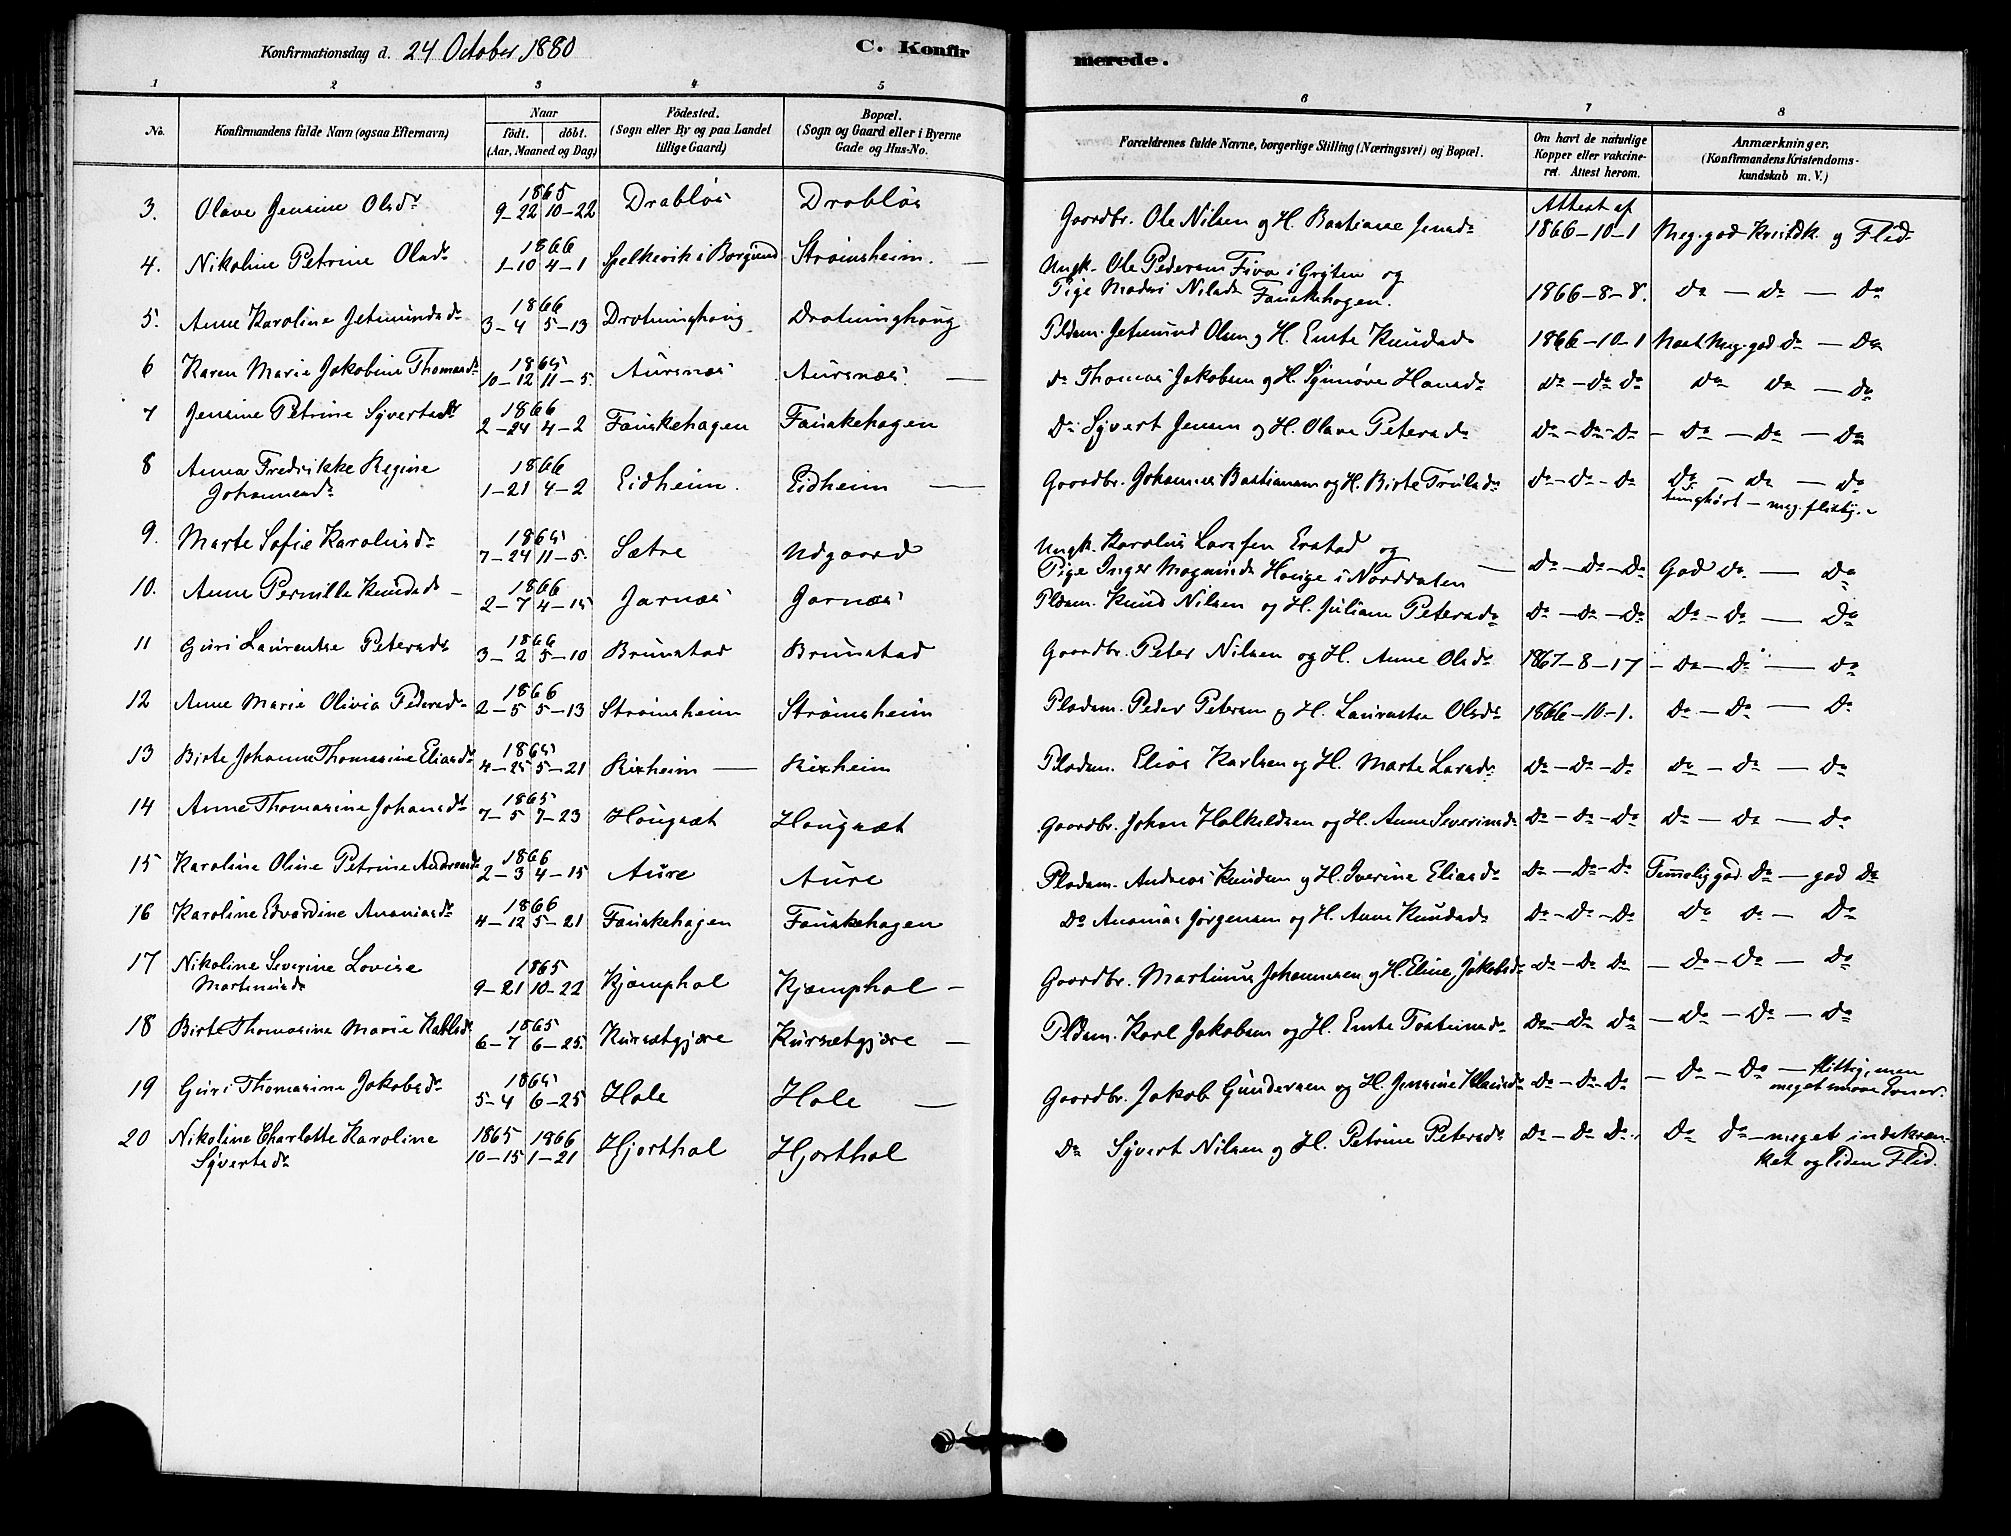 Konfirmationsdag d. 24 October 1880
C. Konfirmerede.
1 2 3 4 5 6 7 8
No. Konfirmandens fulde Navn (ogsaa Efternavn) Naar født. døbt. (Aar, Maaned og Dag) Fødested. (Sogn eller By og paa Landet tillige Gaard) Bopæl. (Sogn og Gaard eller i Byerne Gade og Hus-No. Forældrenes fulde Navne, borgerlige Stilling (Næringsvei) og Bopæl. Om havt de naturlige Kopper eller vakcineret. Attest herom. Anmærkninger. (Konfirmandens Kristendomskundskab m. V.)
3. Olave Jensine Olsdr 1865 9-22 10-22 Drabløs Drabløs Gaardbr. Ole Nilsen og H. Bastiane Jensdr Attest af 1866-10-1 Meg. god Kristdk. og Flid
4. Nikoline Petrine Olsdr 1866 1-10 4-1 Spelkevik i Borgund Strømsheim. — Ungk. Ole Pedersen Fiva i Gryten og
Pige Maderi Nilsdr Fauskehagen. 1866-8-8. Do — Do — Do
5. Anne Karoline Jetmundsdr 1866 3-4 5-13 Drotninghaug Drotninghaug Pldsm. Jetmund Olsen og H. Emte Knudsdr 1866-10-1 Næst Meg. god Do — Do
6 Karen Marie Jakobine Thomasdr 1865 10-12 11-5. Aursnes Aursnæs. — Do Thomas Jakobsen og H. Synnøve Hansdr Do - Do Do Do Do — Do
7 Jensine Petrine Syvertsdr 1866 2-24 4-2 Fauskehagen Fauskehagen Do Syvert Jensen og H. Olave Petersdr Do - Do - Do - Do — Do — Do
8 Anna Fredrikke Regine
Johannesdr 1866 1-21 4-2 Eidheim. Eidheim — Gaardbr. Johannes Bastiansen og H. Birte Trulsdr Do - Do - Do Do — Do — Do
tunghørt — meg. flittig.
9. Marte Sofie Karolusdr 1865 7-24 11-5. Sætre Udgaard Ungk. Karolus Larssen Erstad og
Pige Inger Magnusdr Hauge i Norddalen — Do - Do - Do God Do. — Do
10. Anne Pernille Knudsdr — 1866 2-7 4-15 Jarnæs Jarnæs Pldsm. Knud Nilsen og H. Juliane Petersdr Do - Do - Do Do - Do — Do
11 Guri Laurentse Petersdr 1866 3-2 5-10 Brunstad Brunstad Gaardbr. Peter Nilsen og H. Anne Olsdr 1867-8-17 - Do - Do — Do
12 Anne Marie Olivia Pedersdr 1866 2-5 5-13 Strømsheim Strømsheim Pladsm. Peder Petersen og H. Laurentse Olsdr 1866-10-1. Do — Do — Do
13 Birte Johanne Thomasine Eliasdr 1865 4-25 5-21 Rixheim — Rixheim Pladsm. Elias Karlsen og H. Marte Larsdr Do - Do - Do Do - Do — Do
14 Anne Thomasine Johansdr 1865 7-5 7-23 Haugsæt Haugsæt Gaardbr. Johan Halkeldsen og H. Anne Severinsdr Do - Do - Do Do — Do — Do
15 Karoline Oline Petrine Andreasdr 1866 2-3 4-15 Aure Aure Pladsm. Andreas Knudsen og H. Iverine Eliasdr Do — Do - Do Temmelig god Do — god Do
16 Karoline Edvardine Ananiasdr 1866 4-12 5-21 Fauskehagen Fauskehagen Do Ananias Jørgensen og H. Anne Knudsdr Do - Do - Do Do Do — Do
17 Nikoline Severine Lovise
Martinusdr 1865 9-21 10-22 Kjæmphol Kjæmphol — Gaardbr. Martinus Johannesen og H. Eline Jakobsdr Do - Do Do — Do - Do — Do
18 Birte Thomasine Marie Karlsdr 1865 6-7 6-25. Kursætgjære Kursætgjære — Pldsm. Karl Jakobsen og H. Emte Tosteinsdr Do - Do Do — Do - Do — Do
19 Guri Thomasine Jakobsdr 1865 5-4 6-25 Hole Hole — Gaardbr. Jakob Gundersen og H. Jensine Klausdr Do - Do - Do — Do - Do — flittig, men
meget smaae Evner.
20 Nikoline Charlotte Karoline
Syvertsdr 1865 10-15 1866 1-21 Hjorthol Hjorthol Do Syvert Nilsen og H. Petrine Petersdr Do - Do Do. Do Do — meget indskræn-
ket og liden Flid.